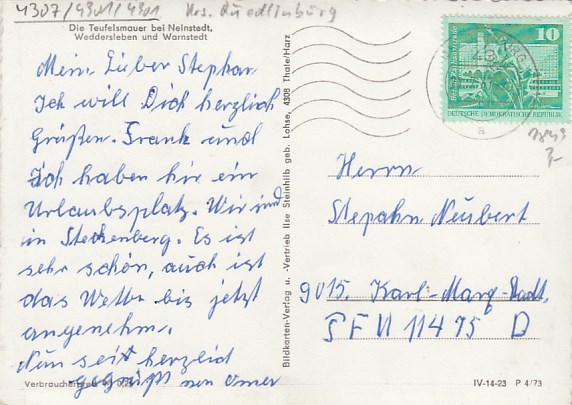 4307/4301/4301 Krs. Quedlinburg
Die Teufelsmauer bei Neinstedt,
Weddersleben und Warnstedt
Mein Lieber Stephan
Ich will Dich herzlich
Grüßen. Frank und
Ich haben hir ein
Urlaubsplatz. Wir sind
in Steckenberg. Es ist
sehr schön, auch ist
das Wetter bis jetzt
angenehm.
Nun seit herzlich
gegrüßt von
Verbraucherpreis
Bildkarten-Verlag u. -Vertrieb Ilse Steinhilb geb. Lohse, 4308 Thale/Harz
10
DEUTSCHE DEMOKRATISCHE REPUBLIK
a
Herrn
Stepahn Neubert
9015. Karl-Marx-Stadt,
PFN 11475 D
IV-14-23 P 4/73